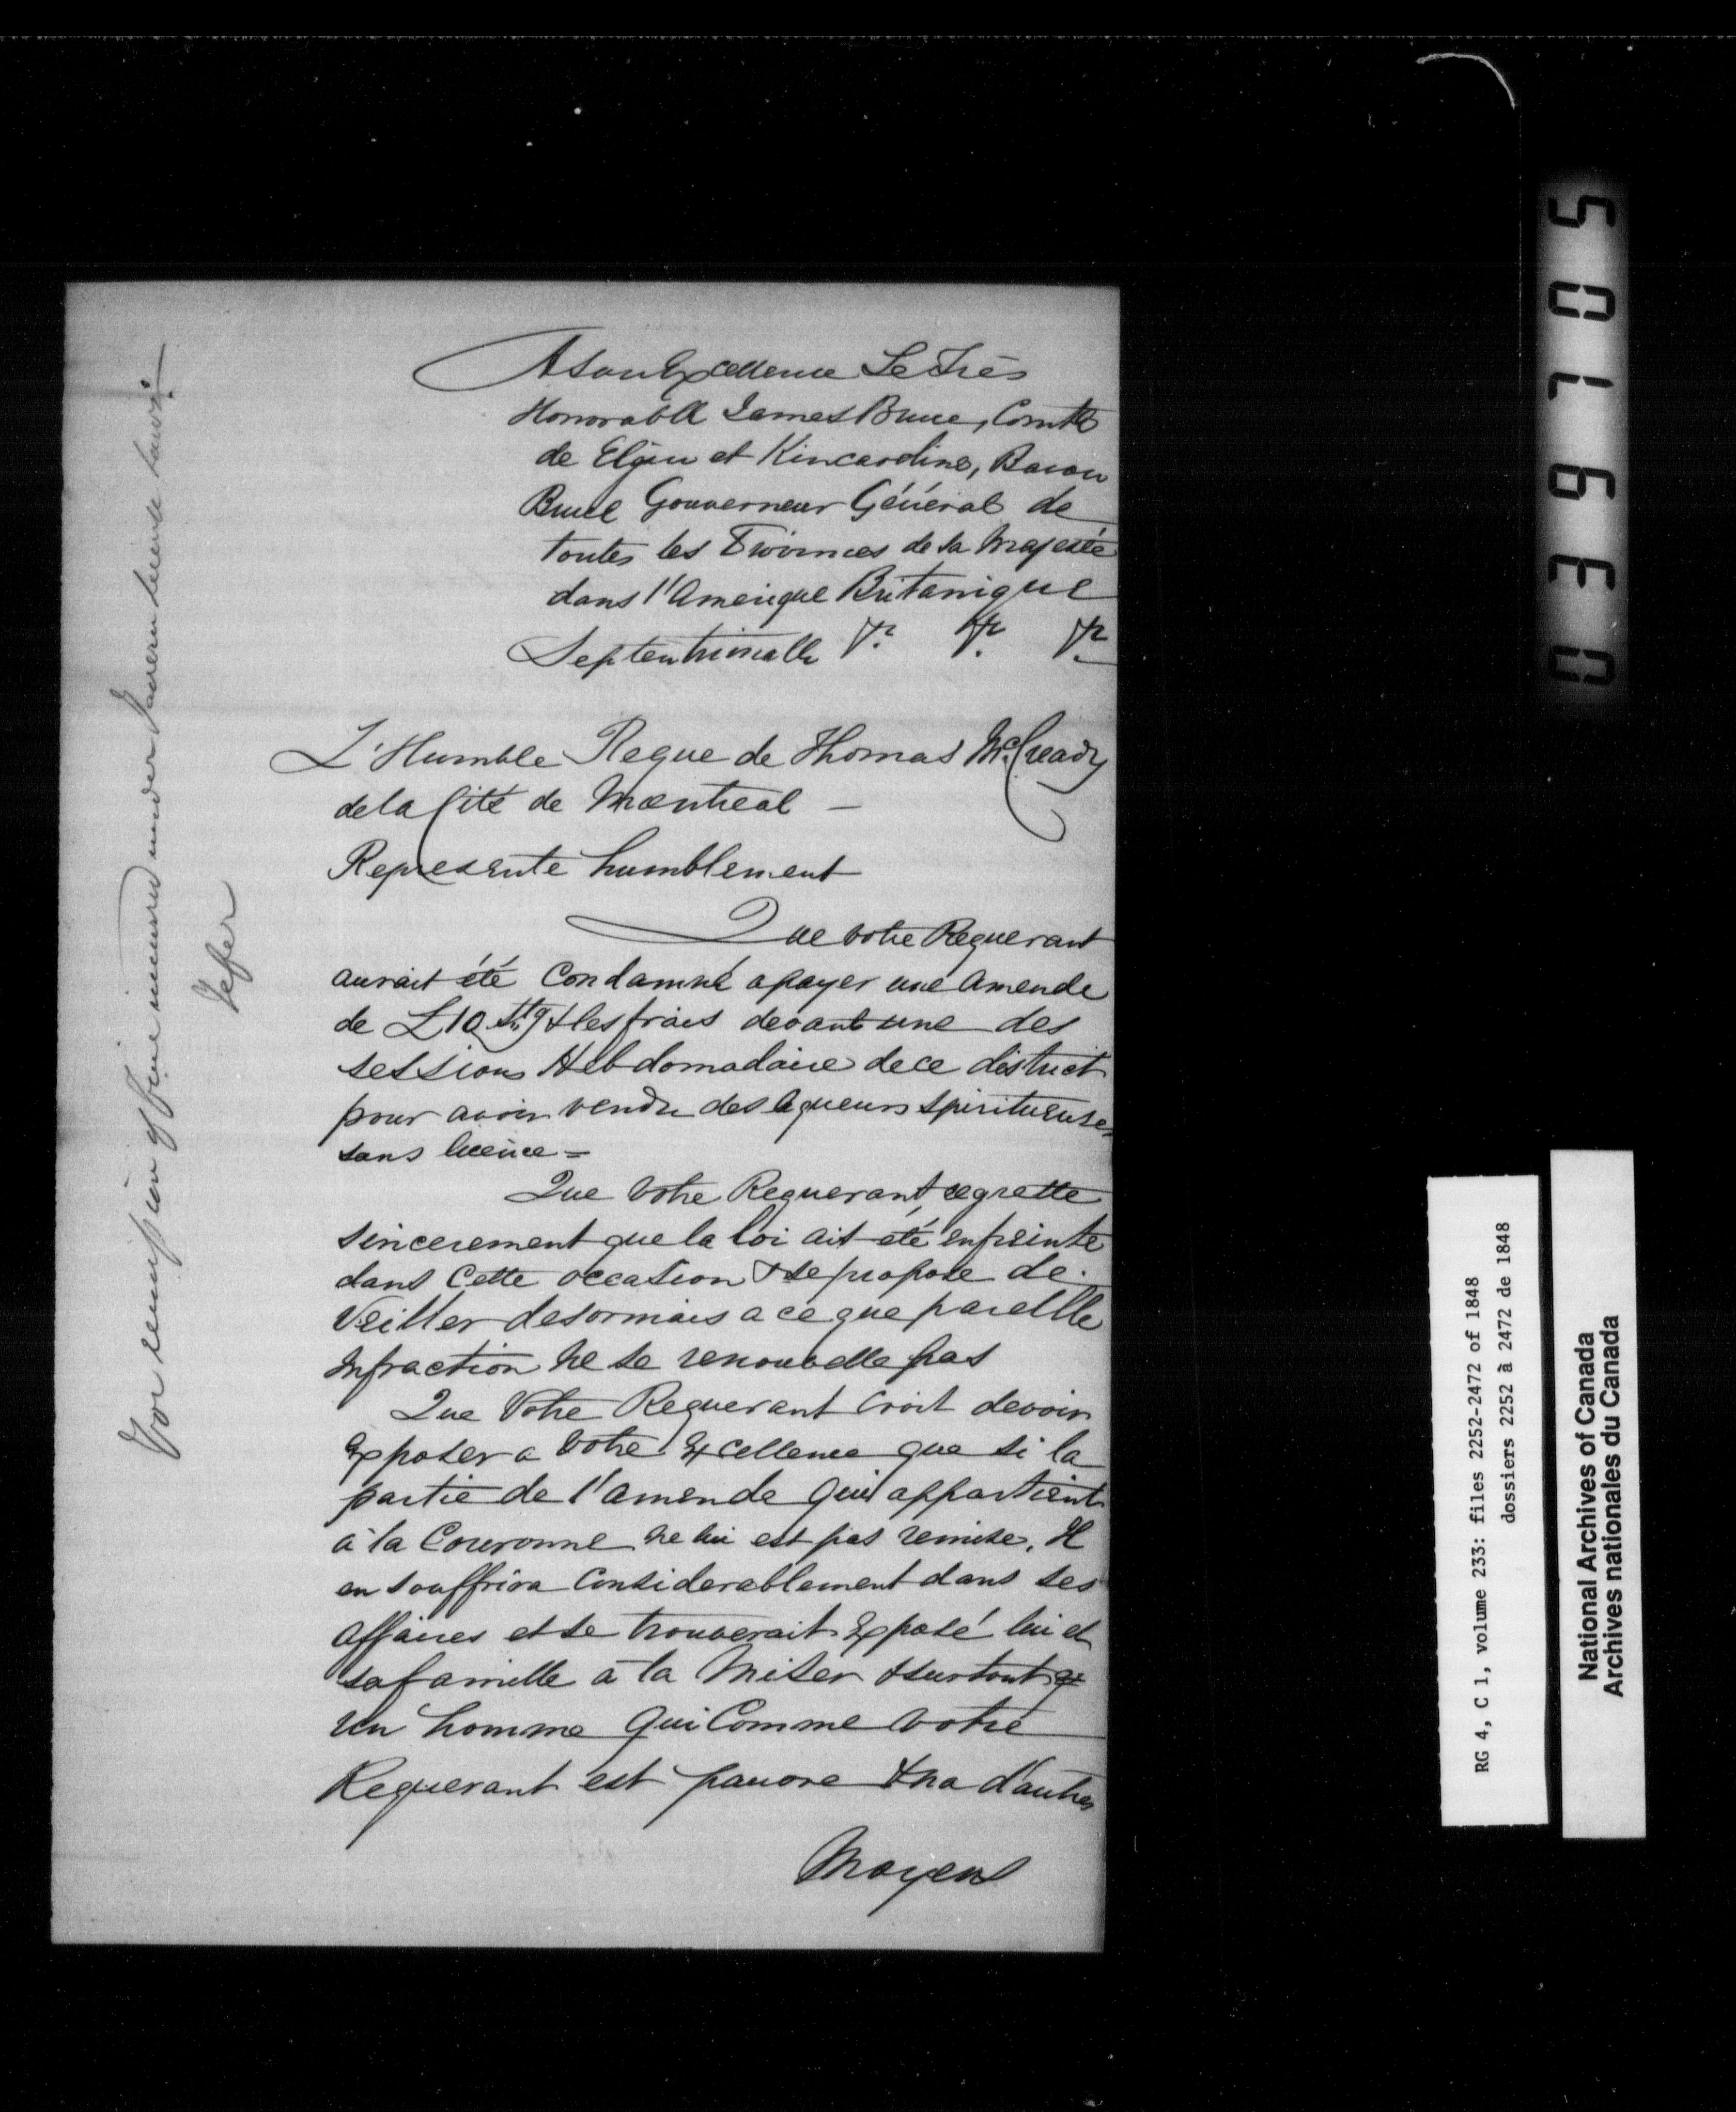 A Son Excellence Le Très
Honorable James Bruce, Comte
de Elgin et Kincardine, Baron
Bruce Gouverneur Général de
toutes les Provinces de sa Majesté
dans l'Amerique Britanique
Septentrionalle &c. &c. &c.
L'Humble Reque de Thomas McCready
de la Cité de Montreal —
Represente humblement
Que votre Requerant
aurait été Condamné a payer une Amende
de £10 Stg & les frais devant une des
sessions Hebdomadaire de ce district
pour avoir vendu des liqueurs spiritueuses
sans licence =
Que Votre Requerant, regrette
sincerement que la loi ait été enfreinte
dans Cette occasion & se propose de
Veiller desormais a ce que pareille
infraction ne se renouvelle pas
Que Votre Requerant Croit devoir
Exposer a Votre Excellence que si la
partie de l'amende qui appartient
à la Couronne ne lui est pas remise, Il
en souffrira Considerablement dans ses
Affaires et se trouverait Exposé lui et
sa famille à la Miser & surtout
un homme qui Comme Votre
Requerant est pauvre & na d'autres
Moyens
For remission of fine incurred under Tavern License Laws:
Refer
039705
RG 4, C 1, volume 233: files 2252-2472 of 1848
dossiers 2252 à 2472 de 1848
National Archives of Canada
Archives nationales du Canada